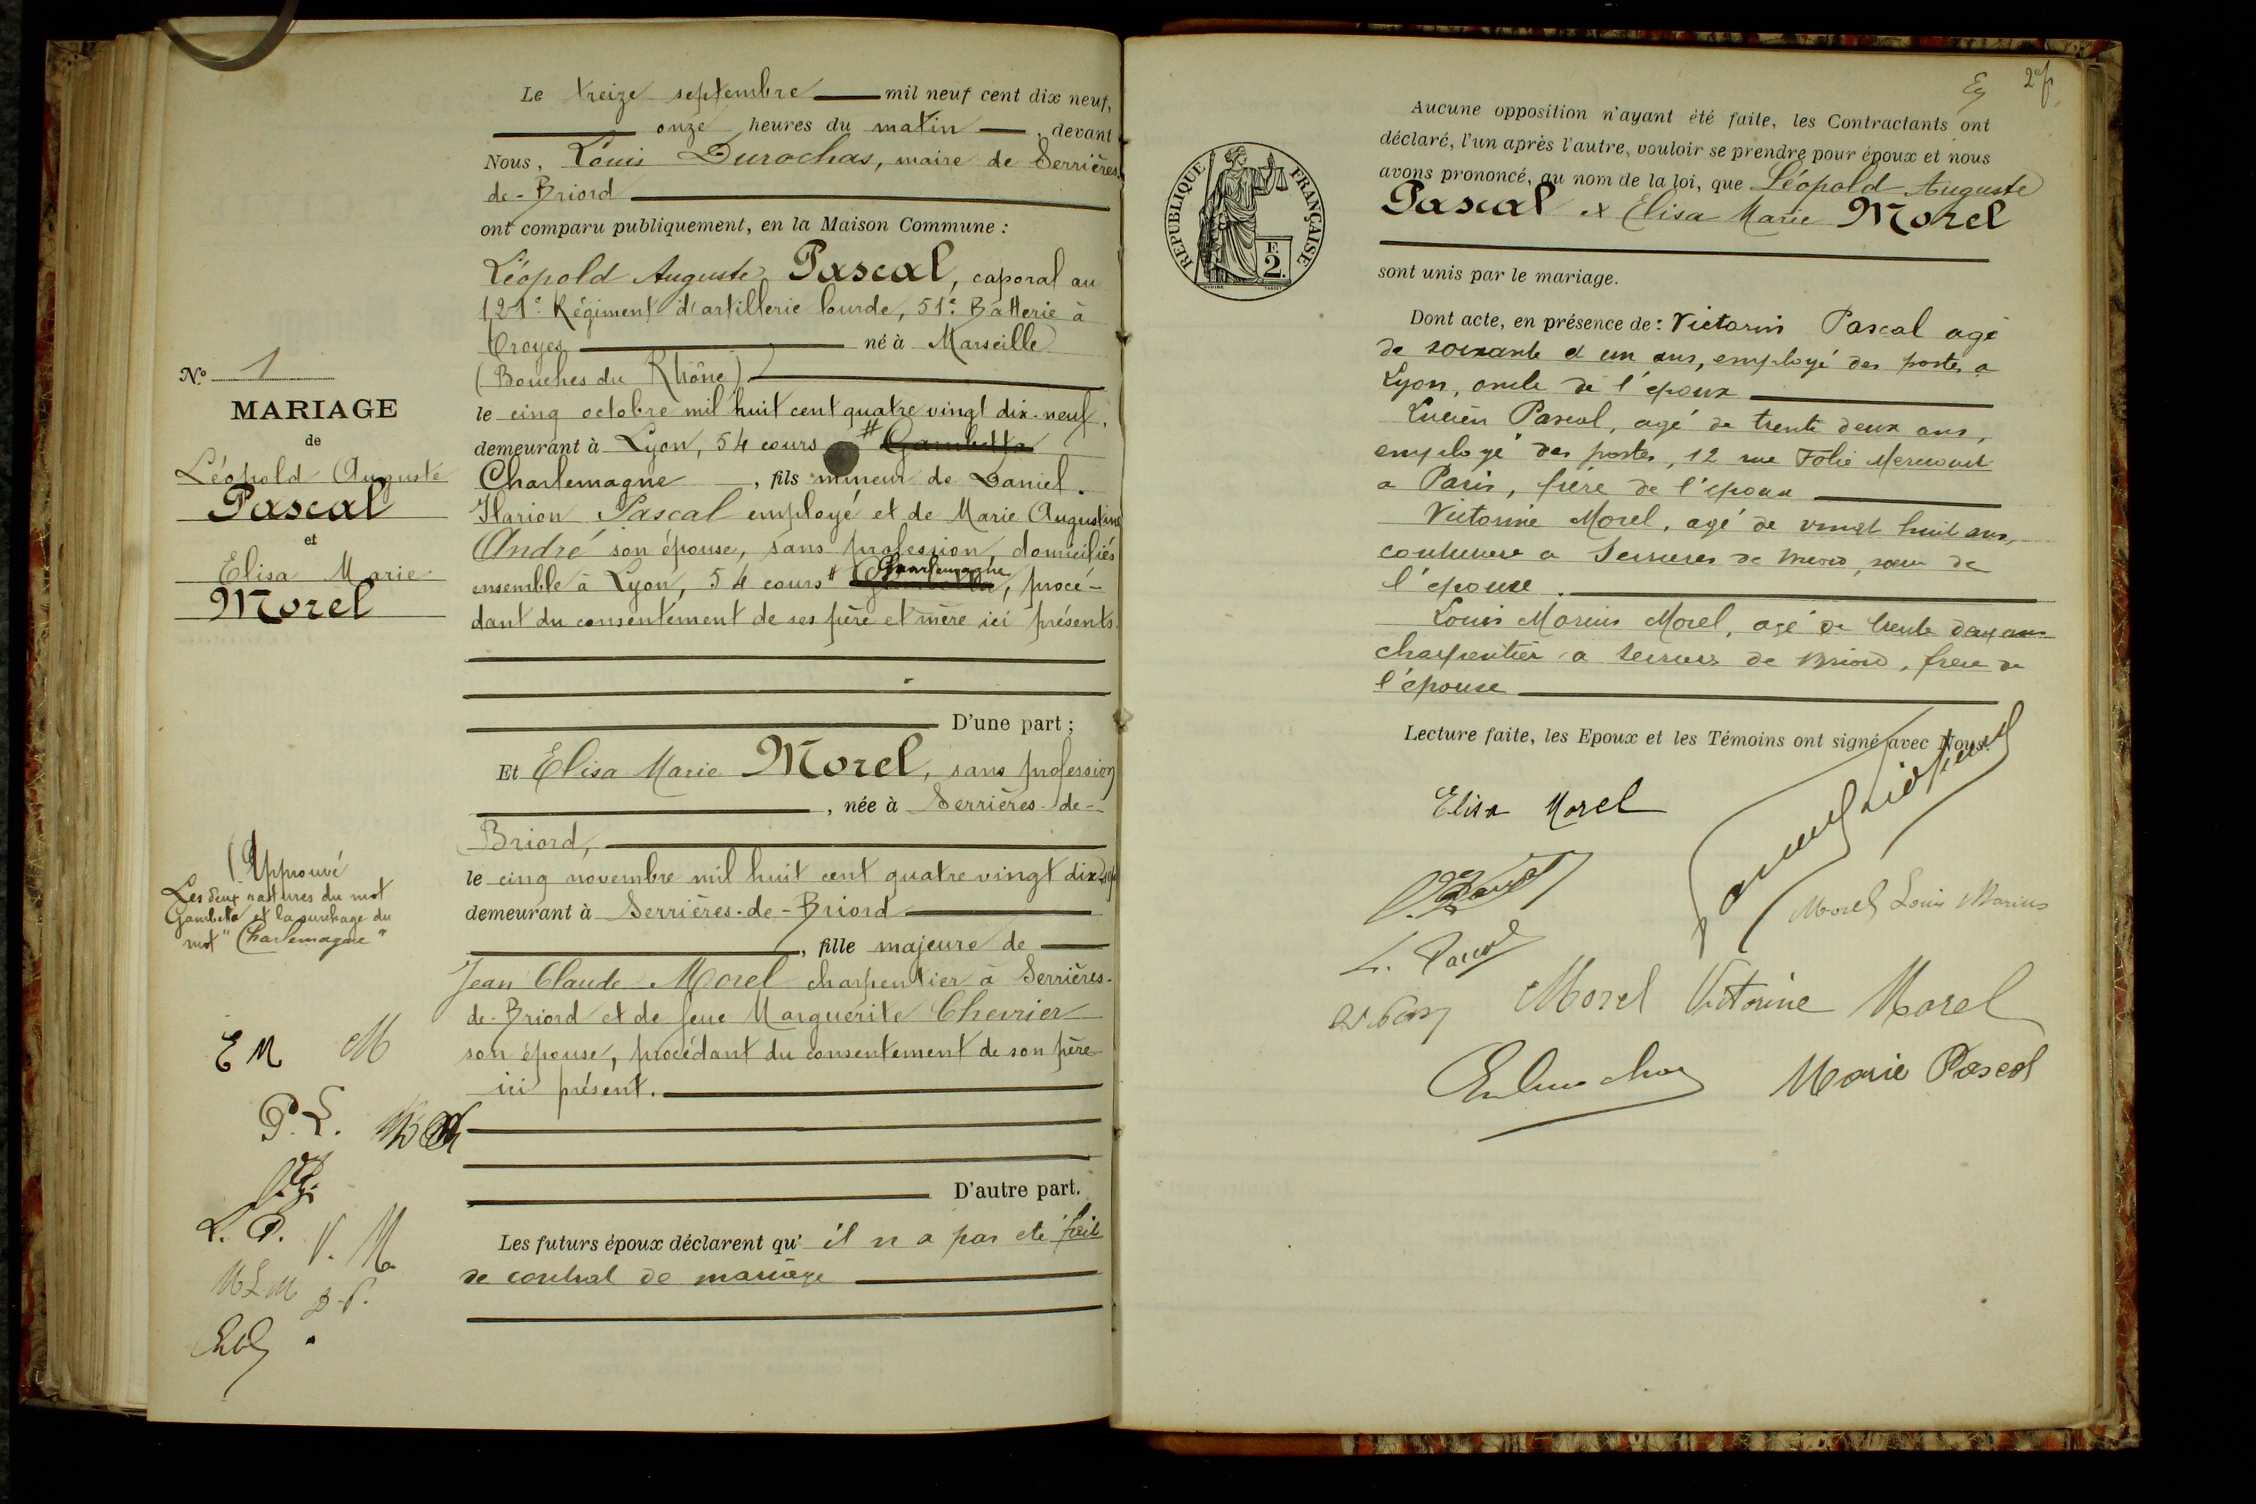 Le treize septembre mil neuf cent dix neuf,
onze heures du matin, devant
Nous, Louis Durochas, maire de Serrières-
de-Briord
ont comparu publiquement, en la Maison Commune :
Léopold Auguste Pascal, caporal au
121e Régiment d'artillerie lourde, 51e Batterie à
Troyes né à Marseille
(Bouches du Rhône)
le cinq octobre mil huit cent quatre vingt dix-neuf,
demeurant à Lyon, 54 cours # Gambetta
Charlemagne, fils mineur de Daniel
Ilarion Pascal employé et de Marie Augustine
André son épouse, sans profession, domiciliés
ensemble à Lyon, 54 cours # Charlemagne, procé-
dant du consentement de ses père et mère ici présents.
D'une part ;
Et Elisa Marie Morel, sans profession
, née à Serrières-de-
Briord,
le cinq novembre mil huit cent quatre vingt dix sept
demeurant à Serrières-de-Briord
, fille majeure de
Jean Claude Morel charpentier à Serrières-
de-Briord et de feue Marguerite Chevrier
son épouse, procédant du consentement de son père
ici présent.
D'autre part.
Les futurs époux déclarent qu' il n a pas ete fait
de contrat de mariage
No 1
MARIAGE
de
Léopold Auguste
Pascal
et
Elisa Marie
Morel
Approuvé
Les deux ratures du mot
Gambetta et la surchage du
mot "Charlemagne"
E M M
P. L.
L. P. V. M
M L M D. P.
2e f.
REPUBLIQUE FRANÇAISE
F. 2
Aucune opposition n'ayant été faite, les Contractants ont
déclaré, l'un après l'autre, vouloir se prendre pour époux et nous
avons prononcé, au nom de la loi, que Léopold Auguste
Pascal et Elisa Marie Morel
sont unis par le mariage.
Dont acte, en présence de : Victorin Pascal agé
de soixante et un ans, employé des postes a
Lyon, oncle de l'epoux
Lucien Pascal, agé de trente deux ans,
employé des postes, 12 rue Folie Mericourt
a Paris, frère de l'epoux
Victorine Morel, agé de vingt huit ans,
couturiere a Serrieres de Briord, sœur de
l'epouse.
Louis Marius Morel, agé de trente deux ans
charpentier a Serrieres de Briord, frere de
l'épouse
Lecture faite, les Epoux et les Témoins ont signé avec Nous.
Elisa Morel
Morel Louis Marius
L. Pascal
Morel Victorine Morel
Marie Pascal